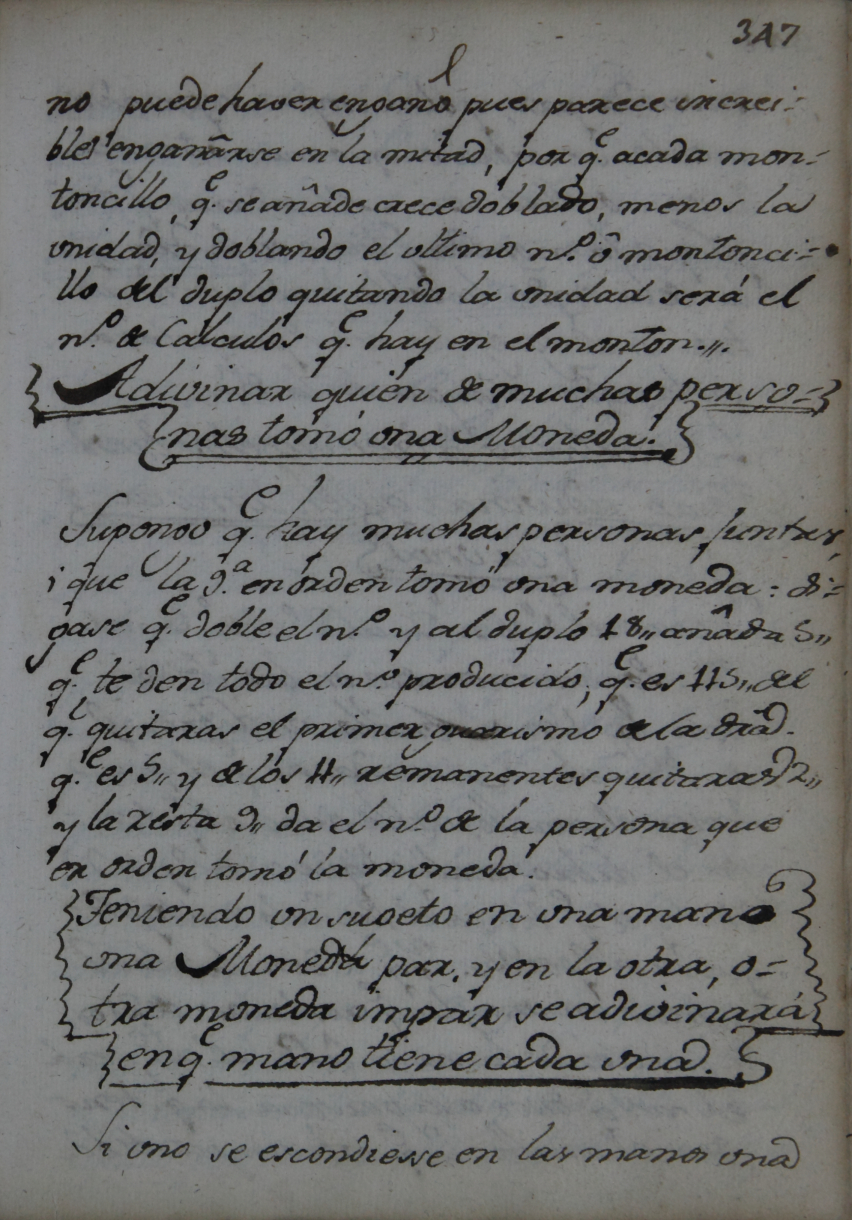 347
no puede haver engaño pues parece increi-
ble engañarse en la mitad, por q.e acada mon-
toncillo, q.e se añade crece doblado, menos la
unidad, y doblando el ultimo n.o ô montonci-
llo del duplo quitando la unidad será el
n.o de Calculos q.e hay en el monton.,,.
Adivinar quién de muchas perso-
nas tomó una Moneda.
Supongo q.e hay muchas personas juntas,
i que la 9.a en orden tomó una moneda: di-
gase q.e doble el n.o y al duplo 18,, añada 5,,
q.e te den todo el n.o producido, q.e es 115,, del
q.e quitaras el primer guarismo de la dra.
q.e es 5,, y de los 11,, remanentes quitaras 2,,
y la resta 9,, da el n.o de la persona que
en orden tomó la moneda.
Teniendo un sugeto en una mano
una Moneda par, y en la otra, o-
tra moneda impar se adivinará
en q.e mano tiene cada una.
Si uno se escondiesse en las manos una